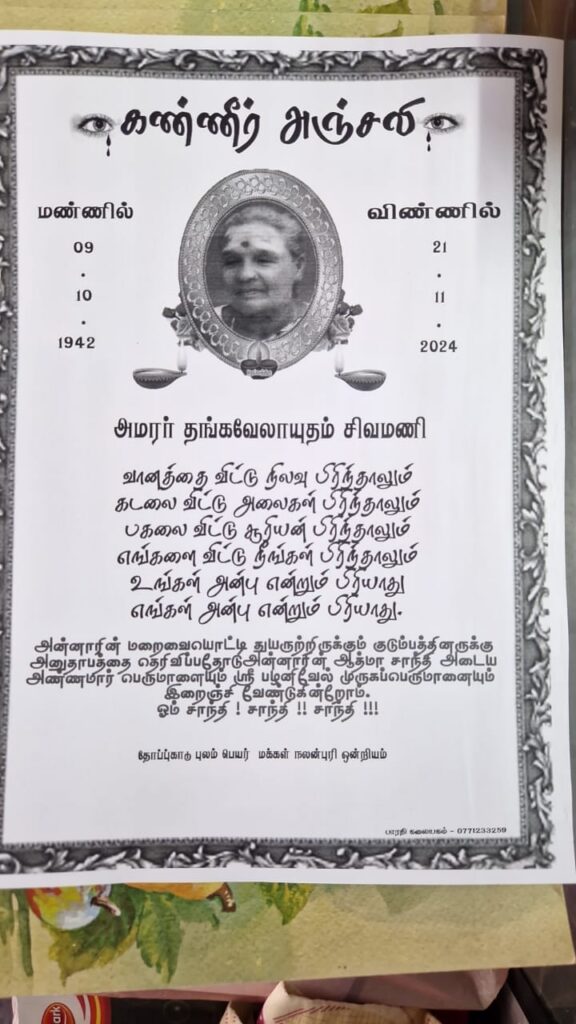 கண்ணீர் அஞ்சலி
மண்ணில்
09
.
10
.
1942
விண்ணில்
21
.
11
.
2024
அமரர் தங்கவேலாயுதம் சிவமணி
வானத்தை விட்டு நிலவு பிரிந்தாலும்
கடலை விட்டு அலைகள் பிரிந்தாலும்
பகலை விட்டு சூரியன் பிரிந்தாலும்
எங்களை விட்டு நீங்கள் பிரிந்தாலும்
உங்கள் அன்பு என்றும் பிரியாது
எங்கள் அன்பு என்றும் பிரியாது.
அன்னாரின் மறைவையொட்டி துயருற்றிருக்கும் குடும்பத்தினருக்கு
அனுதாபத்தை தெரிவிப்பதோடுஅன்னாரின் ஆத்மா சாந்தி அடைய
அண்ணமார் பெருமாளையும் ஸ்ரீ பழனிவேல் முருகப்பெருமானையும்
இறைஞ்சி வேண்டுகின்றோம்.
ஓம் சாந்தி ! சாந்தி !! சாந்தி !!!
தோப்புகாடு புலம் பெயர் மக்கள் நலன்புரி ஒன்றியம்
பாரதி கலையகம் - 0771233259